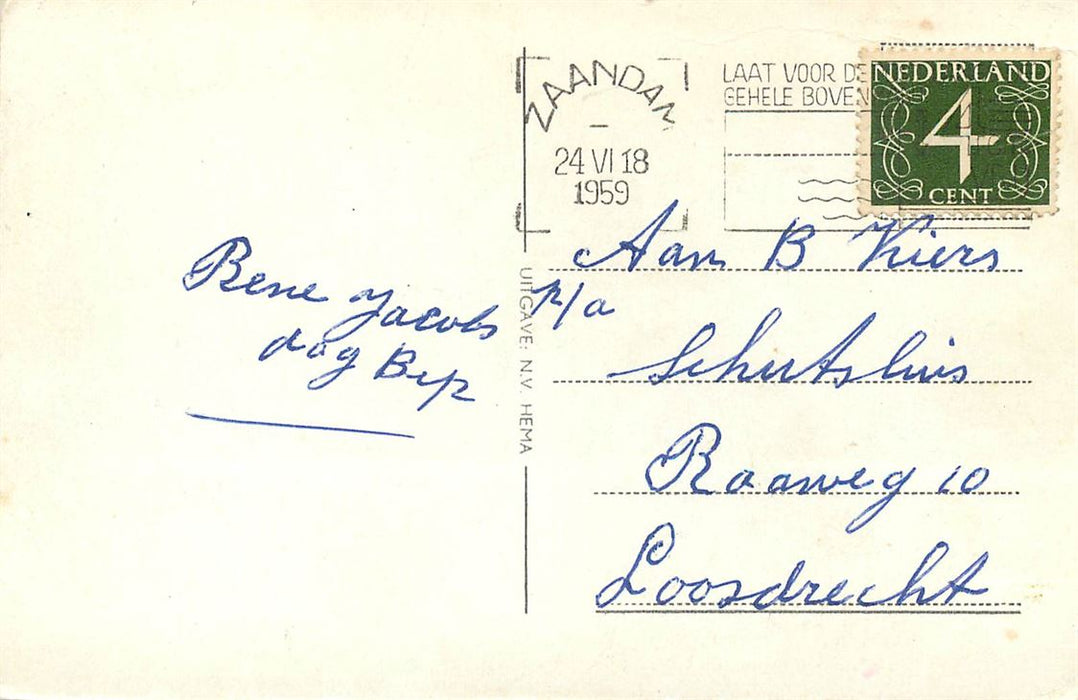 ZAANDAM
24 VI 18
1959
LAAT VOOR DE
GEHELE BOVEN
NEDERLAND
4
CENT
Bene Jacobs
dag Bep
UITGAVE: N.V. HEMA
Aan B Kiers
p/a
Schutsluis
Raaweg 10
Loosdrecht